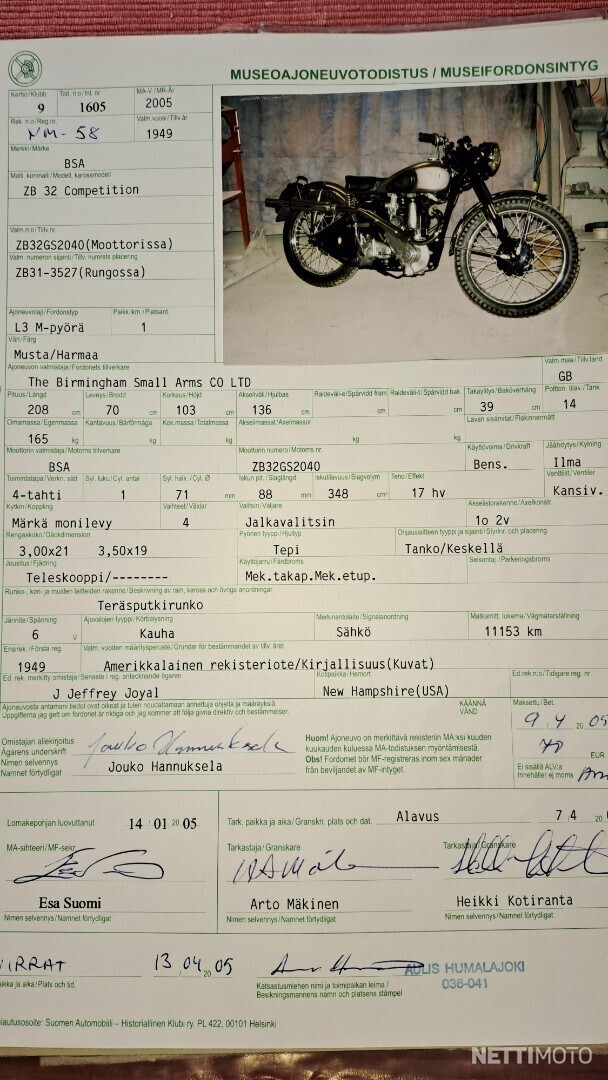 MUSEOAJONEUVOTODISTUS / MUSEIFORDONSINTYG
Kerho/Klubb Tod. n:o/Int. nr MA-V./MR-År
9 1605 2005
Rek. n:o/Reg.nr Valm.vuosi/Tillv.år
NM-58 1949
Merkki/Märke
BSA
Malli, korimalli/Modell, karossmodell
ZB 32 Competition
Valm. n:o/Tillv.nr
ZB32GS2040(Moottorissa)
Valm. numeron sijainti/Tillv. numrets placering
ZB31-3527(Rungossa)
Ajoneuvolaji/Fordonstyp Paikk.lkm./Platsant.
L3 M-pyörä 1
Väri/Färg
Musta/Harmaa
Ajoneuvon valmistaja/Fordonets tillverkare Valm.maa/Tillv.land
The Birmingham Small Arms CO LTD GB
Pituus/Längd Leveys/Bredd Korkeus/Höjd Akseliväli/Hjulbas Raideväli-e/Spårvidd fram Raideväli-t/Spårvidd bak Takaylitys/Baköverhäng Poltton. tilav./Tank
208 cm 70 cm 103 cm 136 cm cm cm 39 cm 14
Omamassa/Egenmassa Kantavuus/Bärförmåga Kok.massa/Totalmassa Akselimassat/Axelmassor Lavan sisämitat/Flakinnermått
165 kg kg kg kg kg
Moottorin valmistaja/Motorns tillverkare Moottorin numero/Motorns nr Käyttövoima/Drivkraft Jäähdytys/Kylning
BSA ZB32GS2040 Bens. Ilma
Toimintatapa/Verkn. sätt Syl. luku/Cyl. antal Syl. halk./Cyl. Ø Iskun pit./Slaglängd Iskutilavuus/Slagvolym Teho/Effekt Venttiilit/Ventiler
4-tahti 1 71 mm 88 mm 348 cm³ 17 hv Kansiv.
Kytkin/Koppling Vaihteet/Växlar Valitsin/Väljare Akselistorakenne/Axelkonstr.
Märkä monilevy 4 Jalkavalitsin 1o 2v
Rengaskoko/Däckdimension Pyörien tyyppi/Hjultyp Ohjauslaitteen tyyppi ja sijainti/Styrinr. och placering
3,00x21 3,50x19 Tepi Tanko/Keskellä
Jousitus/Fjädring Käyttöjarru/Färdbroms Seisontaj./Parkeringsbroms
Teleskooppi/-------- Mek.takap.Mek.etup.
Runko-, kori- ja muiden laitteiden rakenne/Beskrivning av ram, kaross och övriga anordningar
Teräsputkirunko
Jännite/Spänning Ajovalojen tyyppi/Körbelysning Merkinantolaite/Signalanordning Matkamitt. lukema/Vägmätarställning
6 V Kauha Sähkö 11153 km
Ens.rek./Första reg. Valm. vuoden määritysperuste/Grunder för bestämmandet av tillv. året
1949 Amerikkalainen rekisteriote/Kirjallisuus(Kuvat)
Ed. rek. merkitty omistaja/Senaste i reg. antecknande ägaren Kotipaikka/Hemort Ed.rek.n:o/Tidigare reg. nr
J Jeffrey Joyal New Hampshire(USA)
Ajoneuvosta antamani tiedot ovat oikeat ja tulen noudattamaan annettuja ohjeita ja määräyksiä.
Uppgifterna jag gett om fordonet är riktiga och jag kommer att följa givna direktiv och bestämmelser.
KÄÄNNÄ
VÄND
Maksettu/Bet.
9.4 2005
Omistajan allekirjoitus
Ägarens underskrift
Jouko Hannuksela
Nimen selvennys
Namnet förtydligat
Jouko Hannuksela
Huom! Ajoneuvo on merkittävä rekisteriin MA:ksi kuuden
kuukauden kuluessa MA-todistuksen myöntämisestä.
Obs! Fordomet bör MF-registreras inom sex månader
från beviljandet av MF-intyget.
70 EUR
Ei sisällä ALV:a
Innehåller ej moms
Lomakepohjan luovuttanut 14 01 2005
Tark. paikka ja aika/Granskn. plats och dat. Alavus 7 4 20
MA-sihteeri/MF-sekr.
Tarkastaja/Granskare
Tarkastaja/Granskare
Esa Suomi
Arto Mäkinen
Heikki Kotiranta
Nimen selvennys/Namnet förtydligat
Nimen selvennys/Namnet förtydligat
Nimen selvennys/Namnet förtydligat
VIRRAT 13.04.2005
AULIS HUMALAJOKI
036-041
paikka ja aika/Plats och tid.
Katsastusmiehen nimi ja toimipaikan leima/
Besiktningsmannens namn och platsens stämpel
Palautusosoite: Suomen Automobiili – Historiallinen Klubi ry. PL 422, 00101 Helsinki
NETTIMOTO